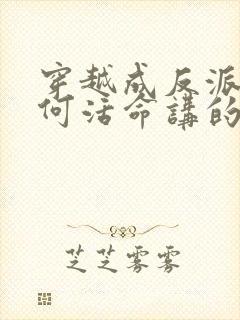 穿越成反派
何活命講的
芝芝雾雾